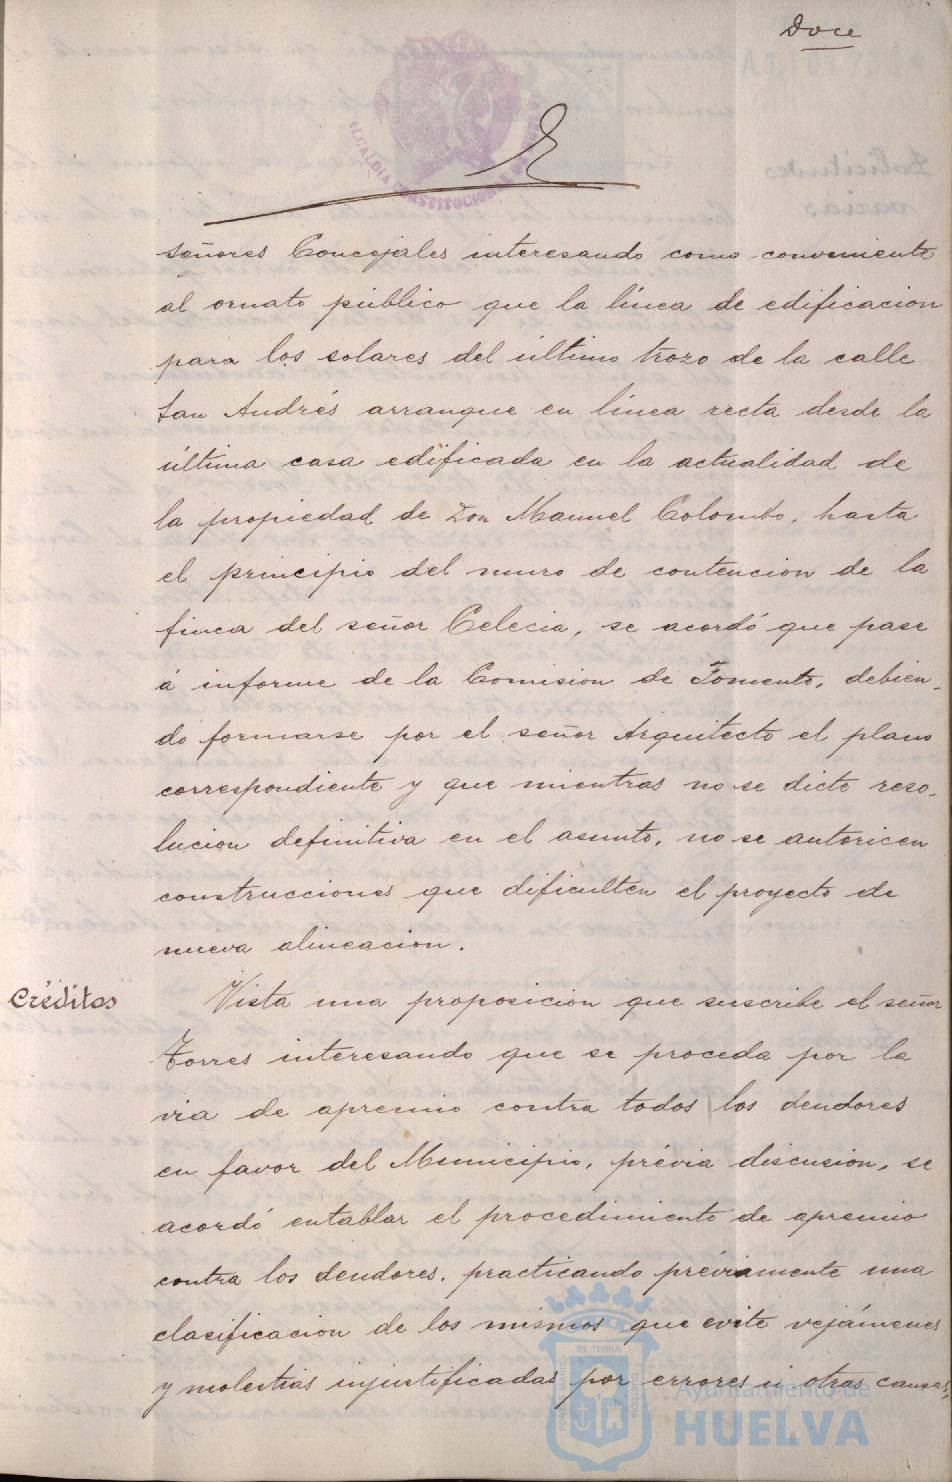 Doce
ALCALDIA CONSTITUCIONAL
señores Concejales interesando como conveniente
al ornato público que la línea de edificacion
para los solares del último trozo de la calle
San Andrés arranque en línea recta desde la
última casa edificada en la actualidad de
la propiedad de Don Manuel Colombo, hasta
el principio del muro de contencion de la
finca del señor Celecia, se acordó que pase
á informe de la Comision de Fomento, debien-
do formarse por el señor Arquitecto el plano
correspondiente y que mientras no se dicte reso-
lucion definitiva en el asunto, no se autoricen
construcciones que dificulten el proyecto de
nueva alineacion.
Créditos
Vista una proposicion que suscribe el señor
Torres interesando que se proceda por la
via de apremio contra todos los deudores
en favor del Municipio, prévia discusion, se
acordó entablar el procedimiento de apremio
contra los deudores, practicando préviamente una
clasificacion de los mismos que evite vejámenes
y molestias injustificadas por errores ú otras causas,
Ayuntamiento de
HUELVA